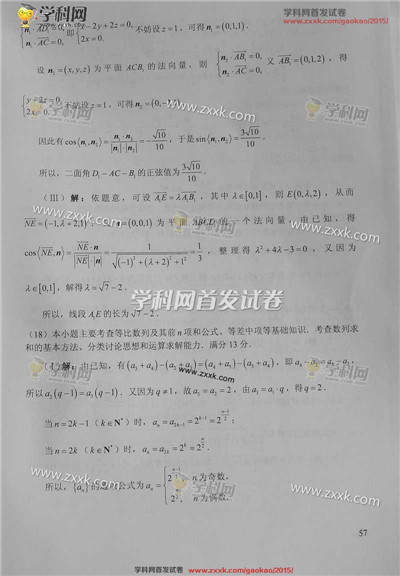 学科网 学科网首发试卷
www.zxxk.com/gaokao/2015/
n₁·AD₁=0, 即 x-2y+2z=0, 不妨设 z=1，可得 n₁=(0,1,1).
n₁·AC=0, 2x=0.
设 n₂=(x,y,z) 为平面 ACB₁ 的法向量，则 { n₂·AB₁=0, n₂·AC=0, 又 AB₁=(0,1,2)，得
{ y+2z=0, 2x=0. 不妨设 z=1，可得 n₂=(0,-
因此有 cos⟨n₁,n₂⟩= n₁·n₂/(|n₁|·|n₂|) = -√10/10，于是 sin⟨n₁,n₂⟩= 3√10/10.
所以，二面角 D₁-AC-B₁ 的正弦值为 3√10/10.
(III) 解：依题意，可设 A₁E=λA₁B₁，其中 λ∈[0,1]，则 E(0,λ,2)，从而
NE=(-1,λ+2,1). n=(0,0,1) 为平面 ABCD 的一个法向量，由已知，得
cos⟨NE,n⟩= NE·n/(|NE|·|n|) = 1/√((-1)²+(λ+2)²+1²) = 1/3，整理得 λ²+4λ-3=0，又因为
λ∈[0,1]，解得 λ=√7-2.
学科网首发试卷
所以，线段 A₁E 的长为 √7-2.
www.zxxk.com/gaokao/2015/
(18) 本小题主要考查等比数列及其前 n 项和公式、等差中项等基础知识. 考查数列求
和的基本方法、分类讨论思想和运算求解能力. 满分 13 分.
(I) 解：由已知，有 (a₃+a₄)-(a₂+a₃)=(a₄+a₅)-(a₃+a₄)，即 a₄-a₂=a₅-a₃，
所以 a₂(q-1)=a₃(q-1). 又因为 q≠1，故 a₃=a₂=2，由 a₃=a₁·q，得 q=2.
当 n=2k-1 (k∈N*) 时，aₙ=a₂ₖ₋₁=2^(k-1)=2^((n-1)/2)；
当 n=2k (k∈N*) 时，aₙ=a₂ₖ=2^k=2^(n/2).
所以，{aₙ} 的通项公式为 aₙ= { 2^((n-1)/2), n 为奇数,
2^(n/2), n 为偶数.
57
学科网首发试卷
www.zxxk.com/gaokao/2015/